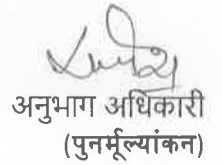 अनुभाग अधिकारी
(पुनर्मूल्यांकन)